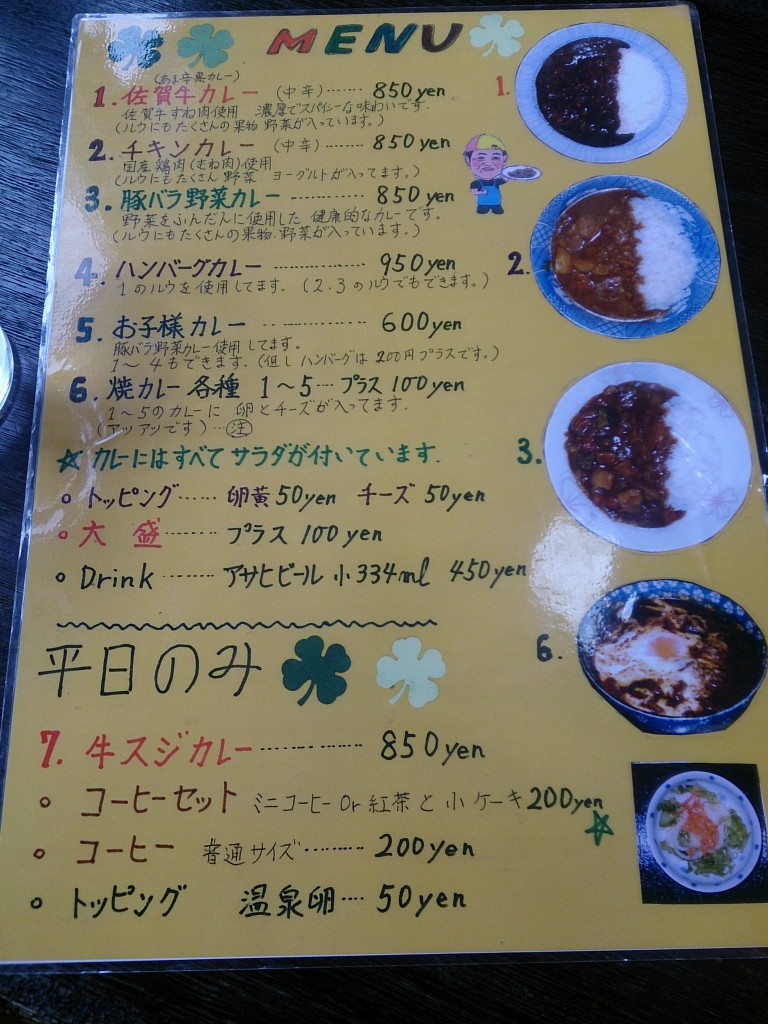 MENU
(あま辛黒カレー)
1. 佐賀牛カレー (中辛)······· 850yen
佐賀牛すね肉使用 濃厚でスパイシーな味わいです.
(ルウにもたくさんの果物 野菜が入っています。)
2. チキンカレー (中辛)········ 850yen
国産鶏肉(むね肉)使用
(ルウにもたくさん 野菜. ヨーグルトが入ってます。)
3. 豚バラ野菜カレー ········ 850yen
野菜をふんだんに使用した 健康的なカレーです。
(ルウにもたくさんの果物.野菜が入っています。)
4. ハンバーグカレー ················ 950yen
1のルウを使用してます。(2.3のルウでもできます。)
5. お子様カレー ················ 600yen
豚バラ野菜カレー使用してます。
1〜4もできます.(但しハンバーグは200円プラスです。)
6. 焼カレー各種 1〜5··· プラス100yen
1〜5のカレーに 卵とチーズが入ってます.
(アツアツです)···注
☆ カレーにはすべてサラダが付いています.
○ トッピング······ 卵黄50yen チーズ50yen
○ 大盛········ プラス100yen
○ Drink ········ アサヒビール小334ml 450yen
平日のみ
7. 牛スジカレー·············· 850yen
○ コーヒーセット ミニコーヒーOr紅茶と小ケーキ200yen
☆
○ コーヒー 普通サイズ········· 200yen
○ トッピング 温泉卵···· 50yen
1.
2.
3.
6.